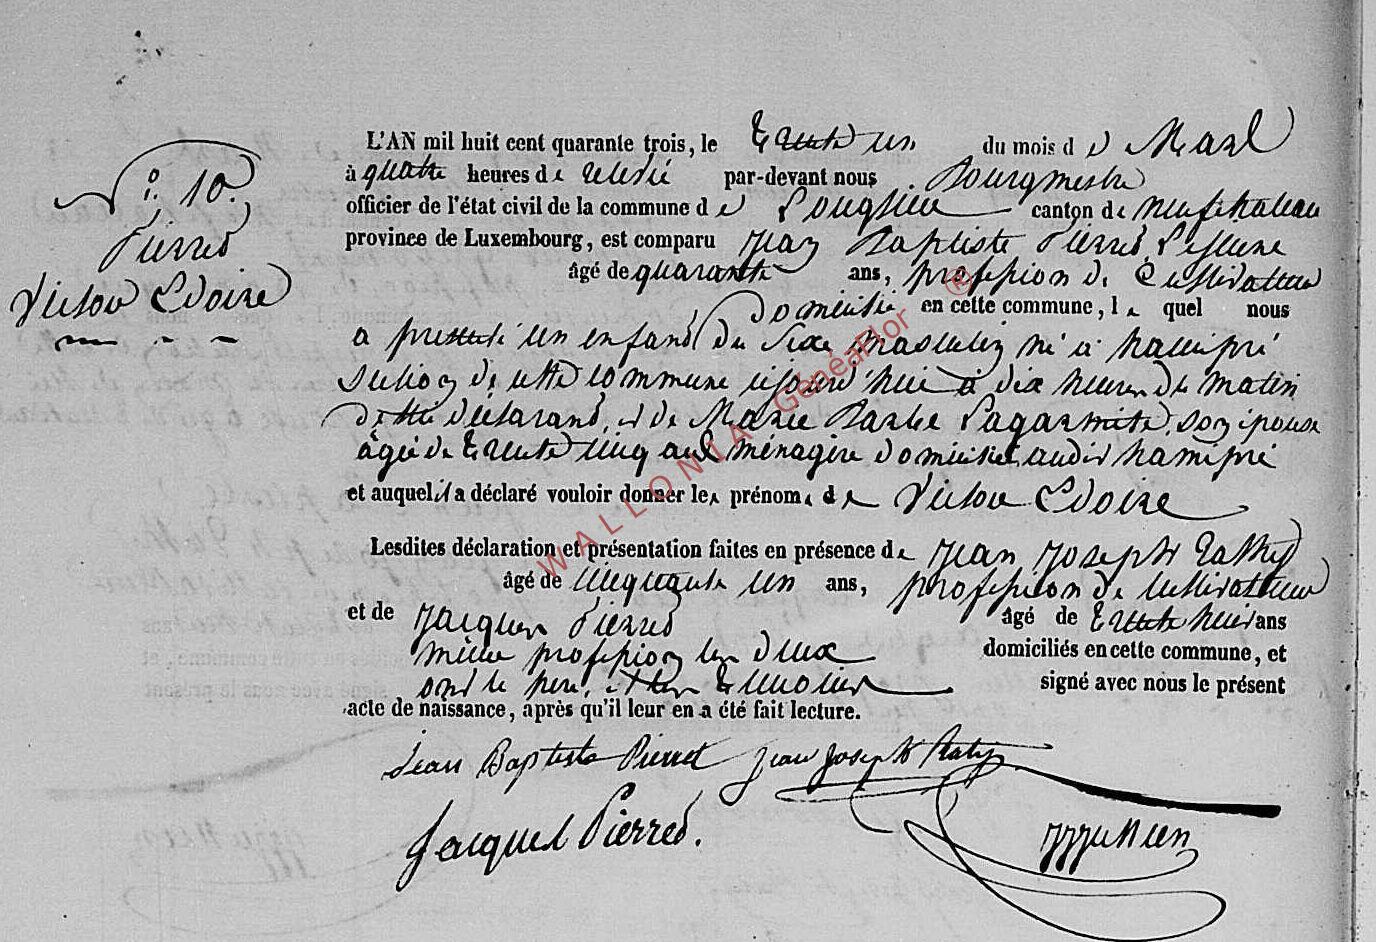 N° 10.
Pierret
Victor Edoire
L'AN mil huit cent quarante trois, le trente un du mois de Mars
à quatre heures de relevée par-devant nous Bourgmestre
officier de l'état civil de la commune de Longlier canton de Neufchateau
province de Luxembourg, est comparu Jean Baptiste Pierret Lejeune
âgé de quarante ans, profession de Cultivateur
domicilié en cette commune, le quel nous
a presenté un enfant du sexe masculin né à hamipré
section de cette commune cejourd'hui à dix heures du matin
de lui déclarant, et de Marie Barbe Lagarmite, son épouse
âgée de trente cinq ans ménagère domiciliée audit hamipré
et auquel il a déclaré vouloir donner les prénoms de Victor Edoire
Lesdites déclaration et présentation faites en présence de Jean Joseph
âgé de cinquante un ans, profession de cultivateur
et de Jacques Pierret âgé de trente huit ans
même profession les deux domiciliés en cette commune, et
ont le père, et les témoins signé avec nous le présent
acte de naissance, après qu'il leur en a été fait lecture.
Jean Baptiste Pierret Jean Joseph
Jacques Pierret.
WALLONIA GénéaFlor ®